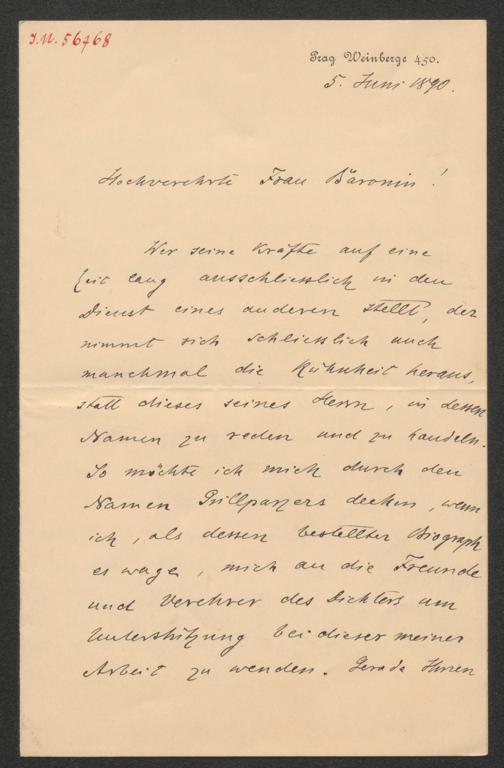 J.N. 56768
Prag Weinberge 450.
5. Juni 1890.
Hochverehrte Frau Baronin!
Wer seine Kräfte auf eine
Zeit lang ausschliesslich in den
Dienst eines anderen stellt, der
nimmt sich schliesslich auch
manchmal die Kühnheit heraus,
statt dieses seines Herrn, in dessen
Namen zu reden und zu handeln.
So möchte ich mich durch den
Namen Grillparzers decken, wenn
ich, als dessen bestellter Biograph
es wage, mich an die Freunde
und Verehrer des Dichters um
Unterstützung bei dieser meiner
Arbeit zu wenden. Gerade Ihnen